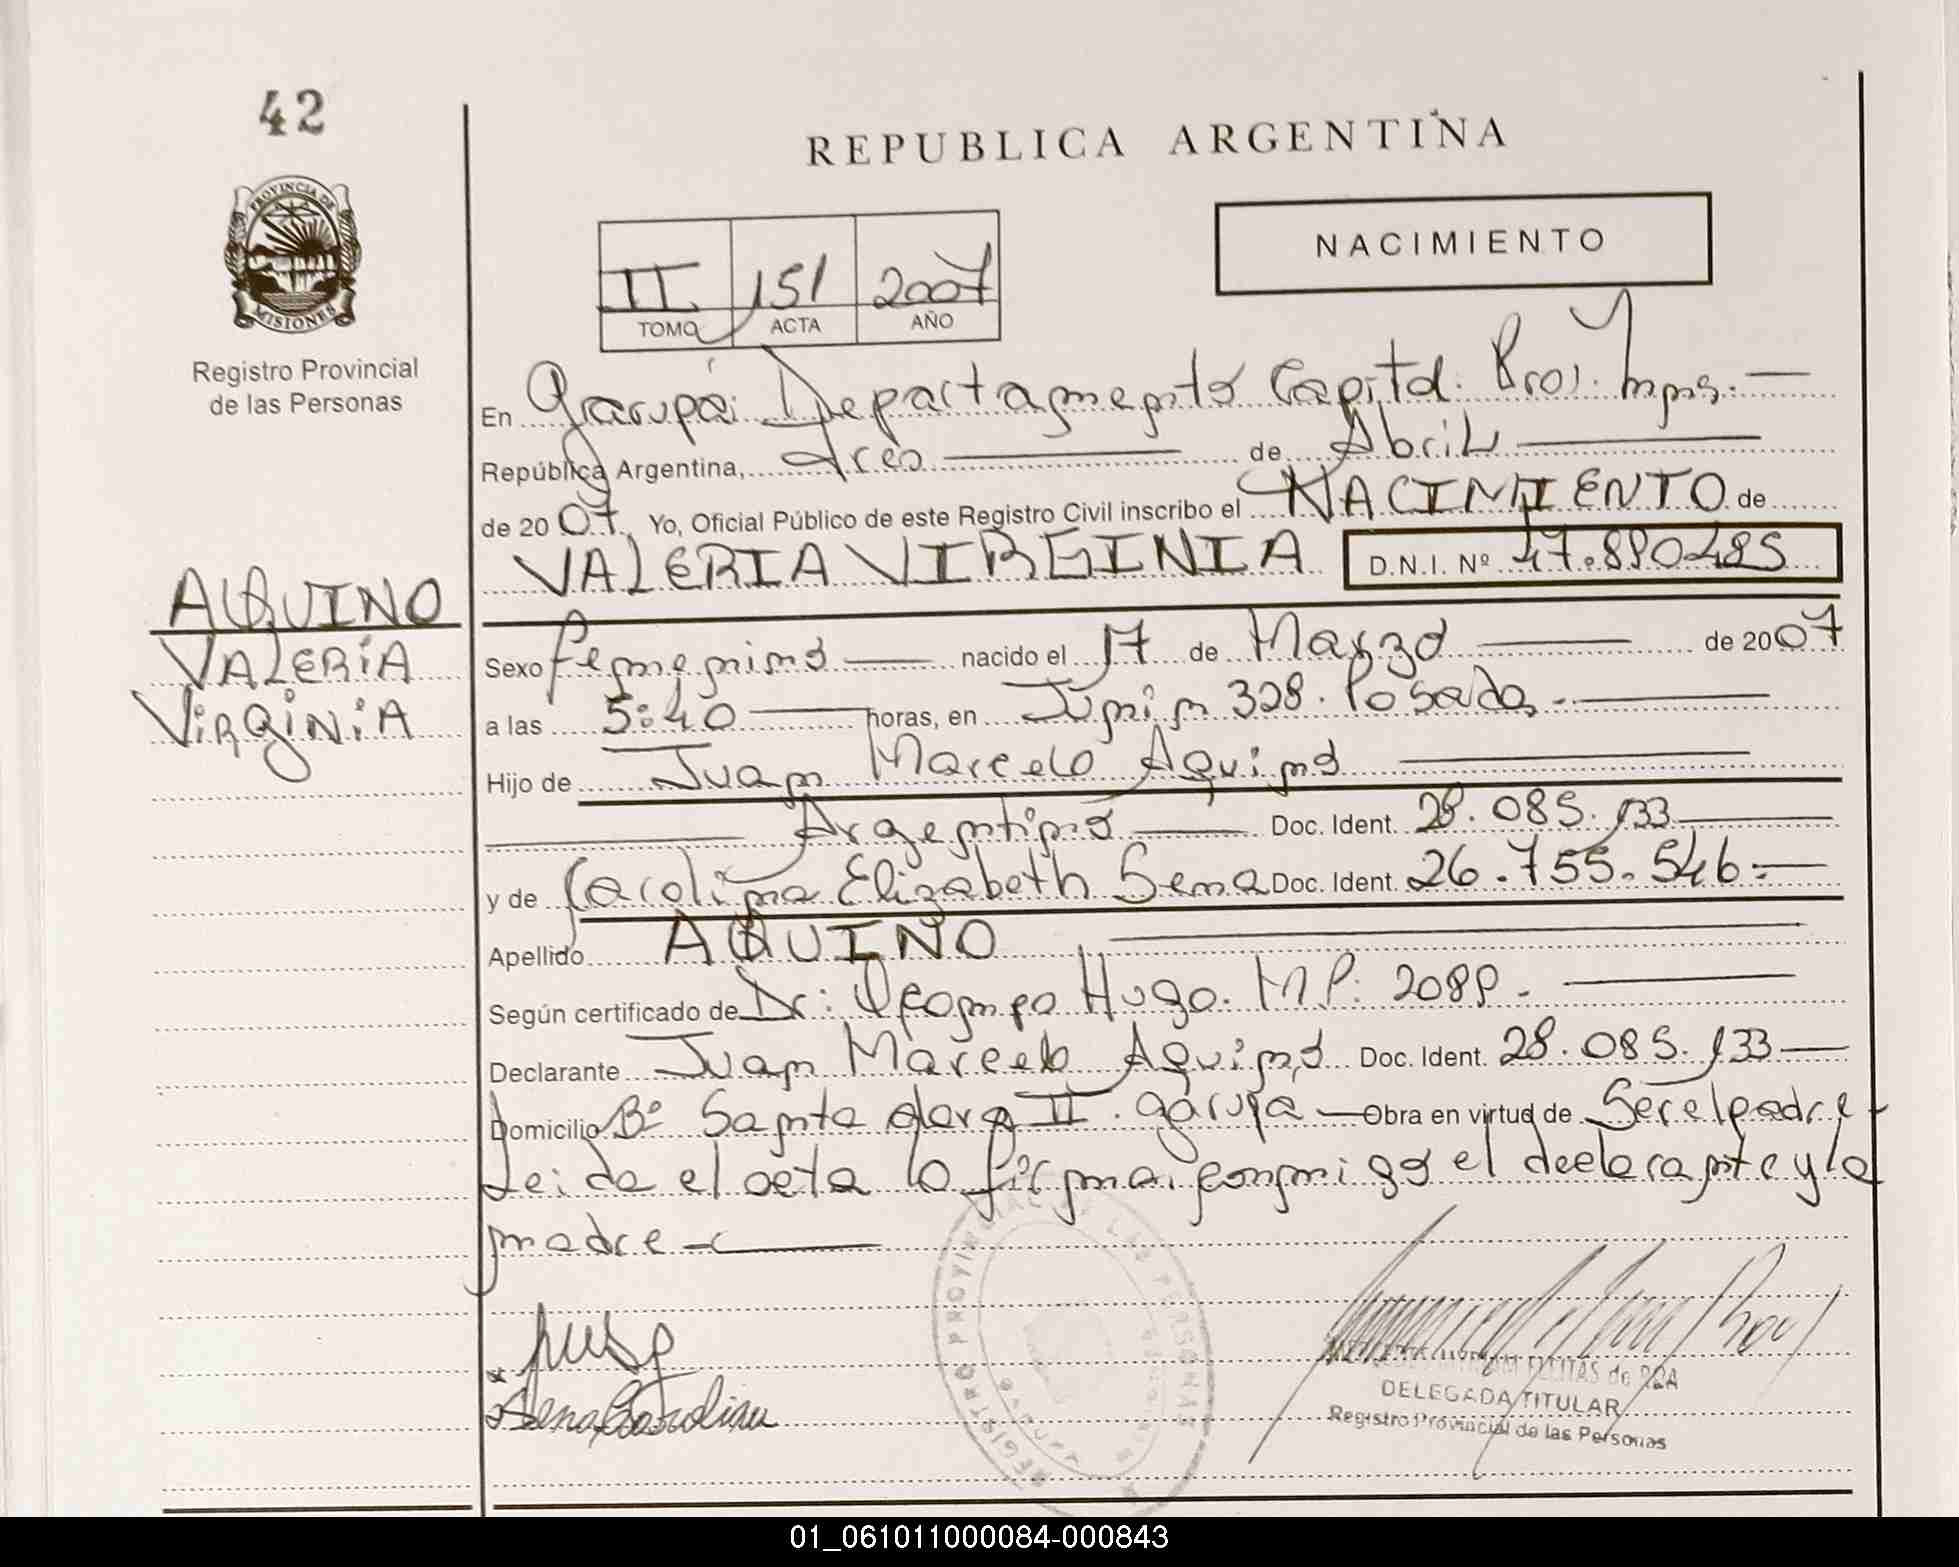 42
REPUBLICA ARGENTINA
PROVINCIA DE
MISIONES
Registro Provincial
de las Personas
NACIMIENTO
II 151 2007
TOMO ACTA AÑO
En Garupá: Departamento Capital. Pros. Mnes.
República Argentina, Tres de Abril
de 2007. Yo, Oficial Público de este Registro Civil inscribo el NACIMIENTO de
VALERIA VIRGINIA D.N.I. Nº 47.890485
AQUINO
VALERIA
VIRGINIA
Sexo femenino nacido el 17 de Marzo de 2007
a las 5:40 horas, en Junin 328. Posadas.
Hijo de Juan Marcelo Aquino
Argentino Doc. Ident. 28.085.133
y de Carolina Elizabeth Sena Doc. Ident. 26.755.546.
Apellido AQUINO
Según certificado de Dr: Ocampo Hugo. M.P: 2089.
Declarante Juan Marcelo Aquino Doc. Ident. 28.085.133
Domicilio Bº Santa Clara II. Garupa Obra en virtud de Ser el padre
Leida el acta la firma conmigo el declarante y la
madre
Sena Carolina
REGISTRO PROVINCIAL DE LAS PERSONAS
FLEITAS de ROA
DELEGADA TITULAR
Registro Provincial de las Personas
01_061011000084-000843